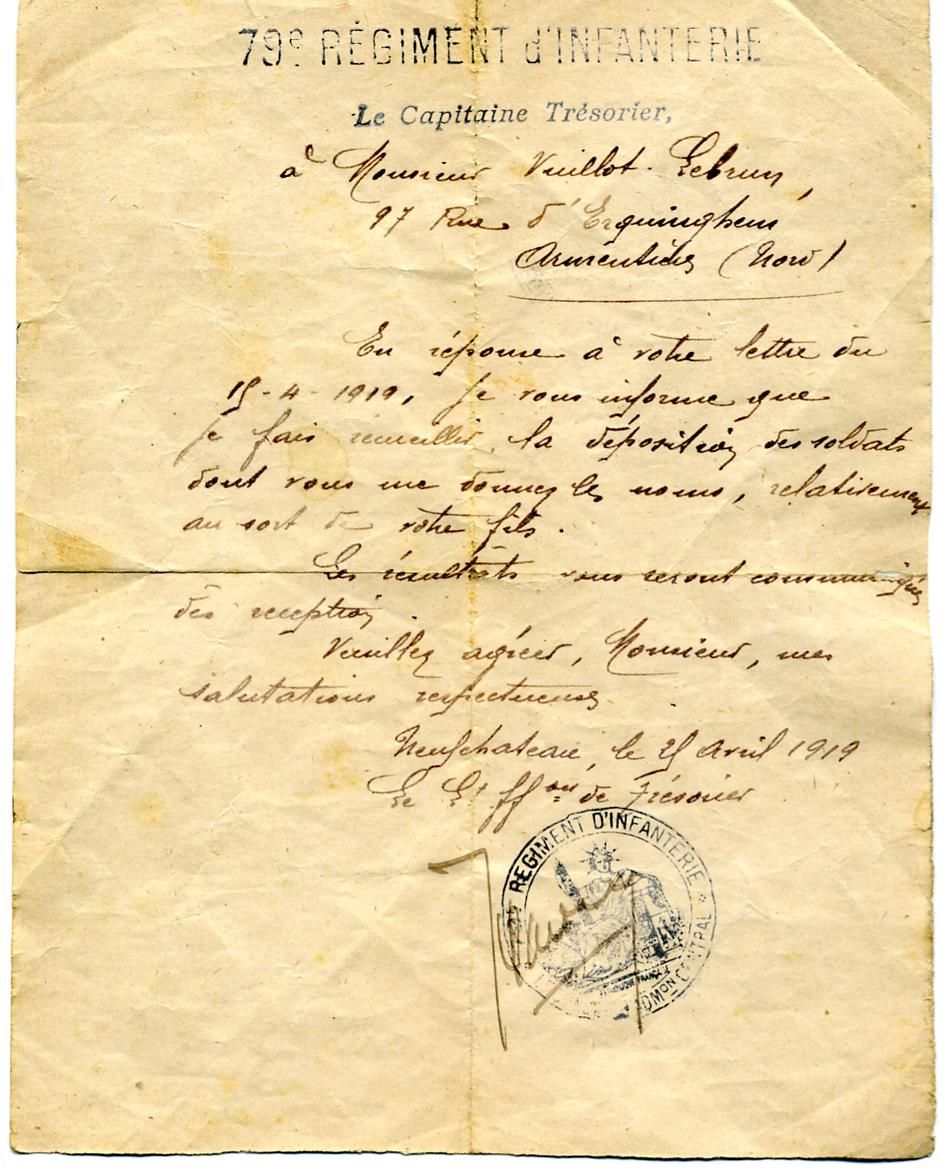 79e RÉGIMENT d'INFANTERIE
Le Capitaine Trésorier,
à Monsieur Vuillot-Lebrun,
97 Rue d'Erquinghem
Armentières (Nord)
En réponse à votre lettre du
15-4-1919, Je vous informe que
Je fais recueillir la déposition des soldats
dont vous me donnez les noms, relativement
au sort de votre fils.
Les résultats vous seront communiqués
dès réception.
Veuillez agréer, Monsieur, mes
salutations respectueuses
Neufchateau, le 25 Avril 1919
Le Lt ffons de Trésorier
RÉGIMENT D'INFANTERIE
ADMON CENTRAL